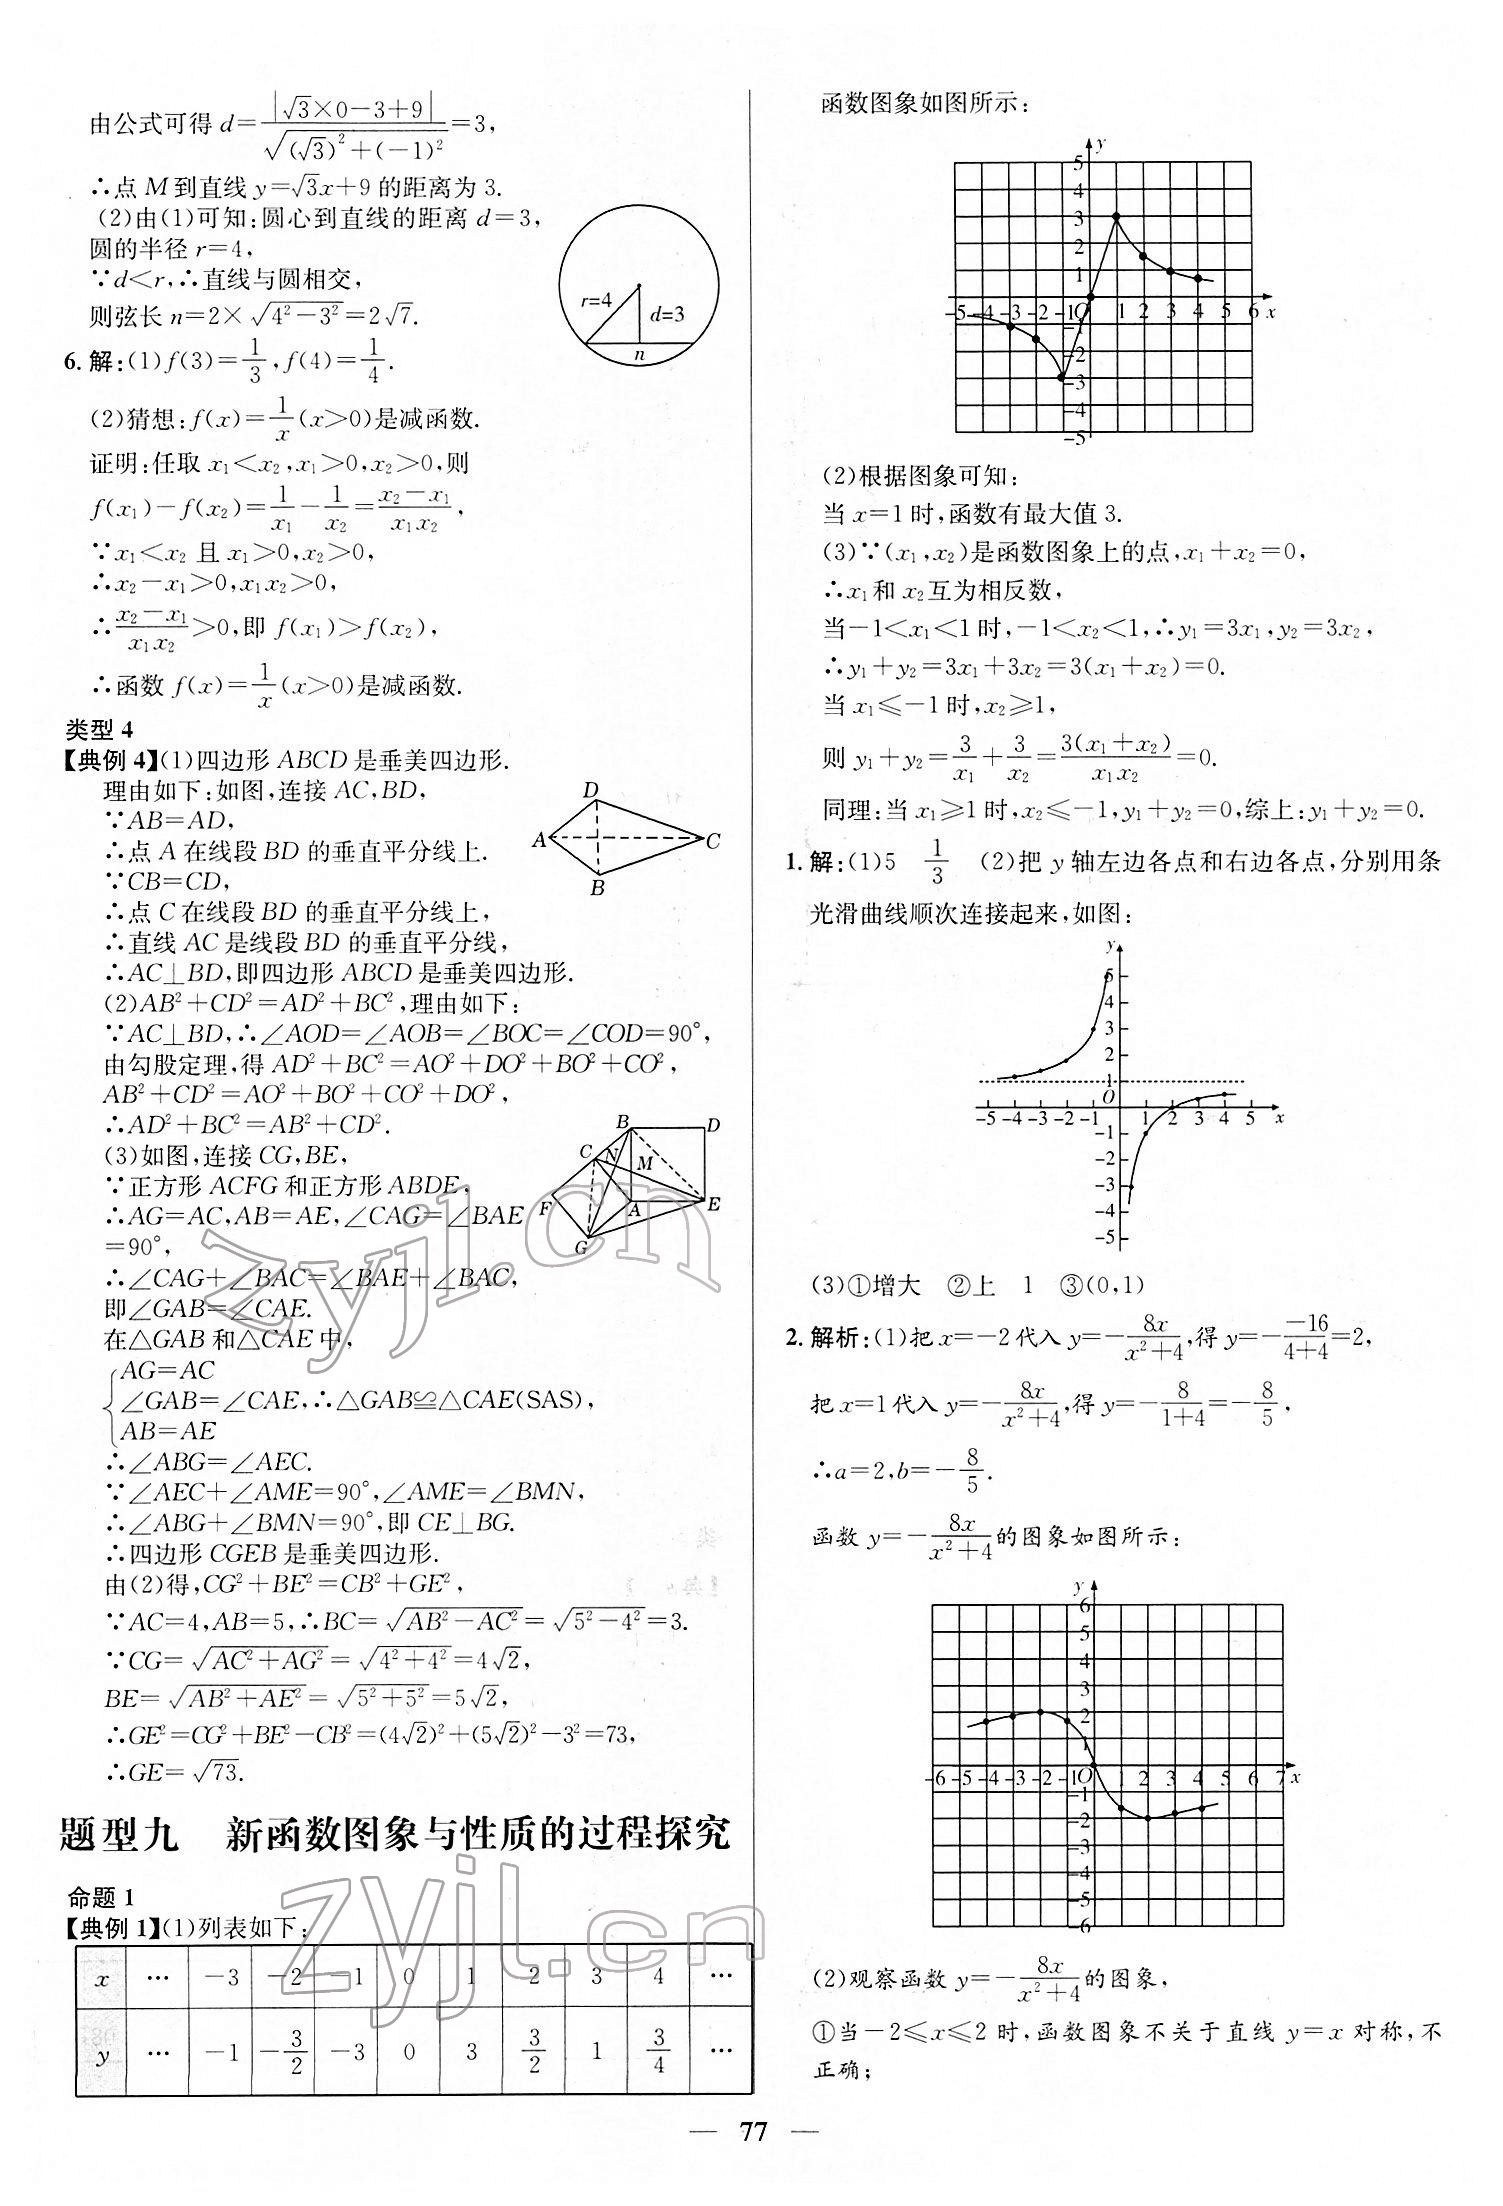 由公式可得 d=|√3×0-3+9|/√((√3)²+(-1)²)=3,
∴点 M 到直线 y=√3x+9 的距离为 3.
(2)由(1)可知:圆心到直线的距离 d=3,
圆的半径 r=4,
∵d<r,∴直线与圆相交,
则弦长 n=2×√(4²-3²)=2√7.
r=4
d=3
n
6.解:(1)f(3)=1/3,f(4)=1/4.
(2)猜想:f(x)=1/x(x>0)是减函数.
证明:任取 x₁<x₂,x₁>0,x₂>0,则
f(x₁)-f(x₂)=1/x₁-1/x₂=(x₂-x₁)/(x₁x₂),
∵x₁<x₂ 且 x₁>0,x₂>0,
∴x₂-x₁>0,x₁x₂>0,
∴(x₂-x₁)/(x₁x₂)>0,即 f(x₁)>f(x₂),
∴函数 f(x)=1/x(x>0)是减函数.
类型 4
【典例 4】(1)四边形 ABCD 是垂美四边形.
理由如下:如图,连接 AC,BD,
∵AB=AD,
∴点 A 在线段 BD 的垂直平分线上.
∵CB=CD,
∴点 C 在线段 BD 的垂直平分线上,
∴直线 AC 是线段 BD 的垂直平分线,
∴AC⊥BD,即四边形 ABCD 是垂美四边形.
D
A
C
B
(2)AB²+CD²=AD²+BC²,理由如下:
∵AC⊥BD,∴∠AOD=∠AOB=∠BOC=∠COD=90°,
由勾股定理,得 AD²+BC²=AO²+DO²+BO²+CO²,
AB²+CD²=AO²+BO²+CO²+DO²,
∴AD²+BC²=AB²+CD².
(3)如图,连接 CG,BE,
∵正方形 ACFG 和正方形 ABDE,
∴AG=AC,AB=AE,∠CAG=∠BAE
=90°,
B D
C N M
F A E
G
∴∠CAG+∠BAC=∠BAE+∠BAC,
即∠GAB=∠CAE.
在△GAB 和△CAE 中,
AG=AC
∠GAB=∠CAE,∴△GAB≌△CAE(SAS),
AB=AE
∴∠ABG=∠AEC.
∵∠AEC+∠AME=90°,∠AME=∠BMN,
∴∠ABG+∠BMN=90°,即 CE⊥BG.
∴四边形 CGEB 是垂美四边形.
由(2)得,CG²+BE²=CB²+GE²,
∵AC=4,AB=5,∴BC=√(AB²-AC²)=√(5²-4²)=3.
∵CG=√(AC²+AG²)=√(4²+4²)=4√2,
BE=√(AB²+AE²)=√(5²+5²)=5√2,
∴GE²=CG²+BE²-CB²=(4√2)²+(5√2)²-3²=73,
∴GE=√73.
题型九 新函数图象与性质的过程探究
命题 1
【典例 1】(1)列表如下:
x … -3 -2 -1 0 1 2 3 4 …
y … -1 -3/2 -3 0 3 3/2 1 3/4 …
函数图象如图所示:
y
5
4
3
2
1
-5 -4 -3 -2 -1 O 1 2 3 4 5 6 x
-1
-2
-3
-4
-5
(2)根据图象可知:
当 x=1 时,函数有最大值 3.
(3)∵(x₁,x₂)是函数图象上的点,x₁+x₂=0,
∴x₁和 x₂互为相反数,
当-1<x₁<1 时,-1<x₂<1,∴y₁=3x₁,y₂=3x₂,
∴y₁+y₂=3x₁+3x₂=3(x₁+x₂)=0.
当 x₁≤-1 时,x₂≥1,
则 y₁+y₂=3/x₁+3/x₂=3(x₁+x₂)/(x₁x₂)=0.
同理:当 x₁≥1 时,x₂≤-1,y₁+y₂=0,综上:y₁+y₂=0.
1.解:(1)5 1/3 (2)把 y 轴左边各点和右边各点,分别用条
光滑曲线顺次连接起来,如图:
y
5
4
3
2
1
O
-5 -4 -3 -2 -1 1 2 3 4 5 x
-1
-2
-3
-4
-5
(3)①增大 ②上 1 ③(0,1)
2.解析:(1)把 x=-2代入 y=-8x/(x²+4),得 y=-(-16)/(4+4)=2,
把 x=1代入 y=-8x/(x²+4),得 y=-8/(1+4)=-8/5,
∴a=2,b=-8/5.
函数 y=-8x/(x²+4)的图象如图所示:
y
6
5
4
3
2
1
-6 -5 -4 -3 -2 -1 O 1 2 3 4 5 6 7 x
-1
-2
-3
-4
-5
-6
(2)观察函数 y=-8x/(x²+4)的图象,
①当-2≤x≤2 时,函数图象不关于直线 y=x 对称,不
正确;
— 77 —
zyjl.cn
zyjl.cn